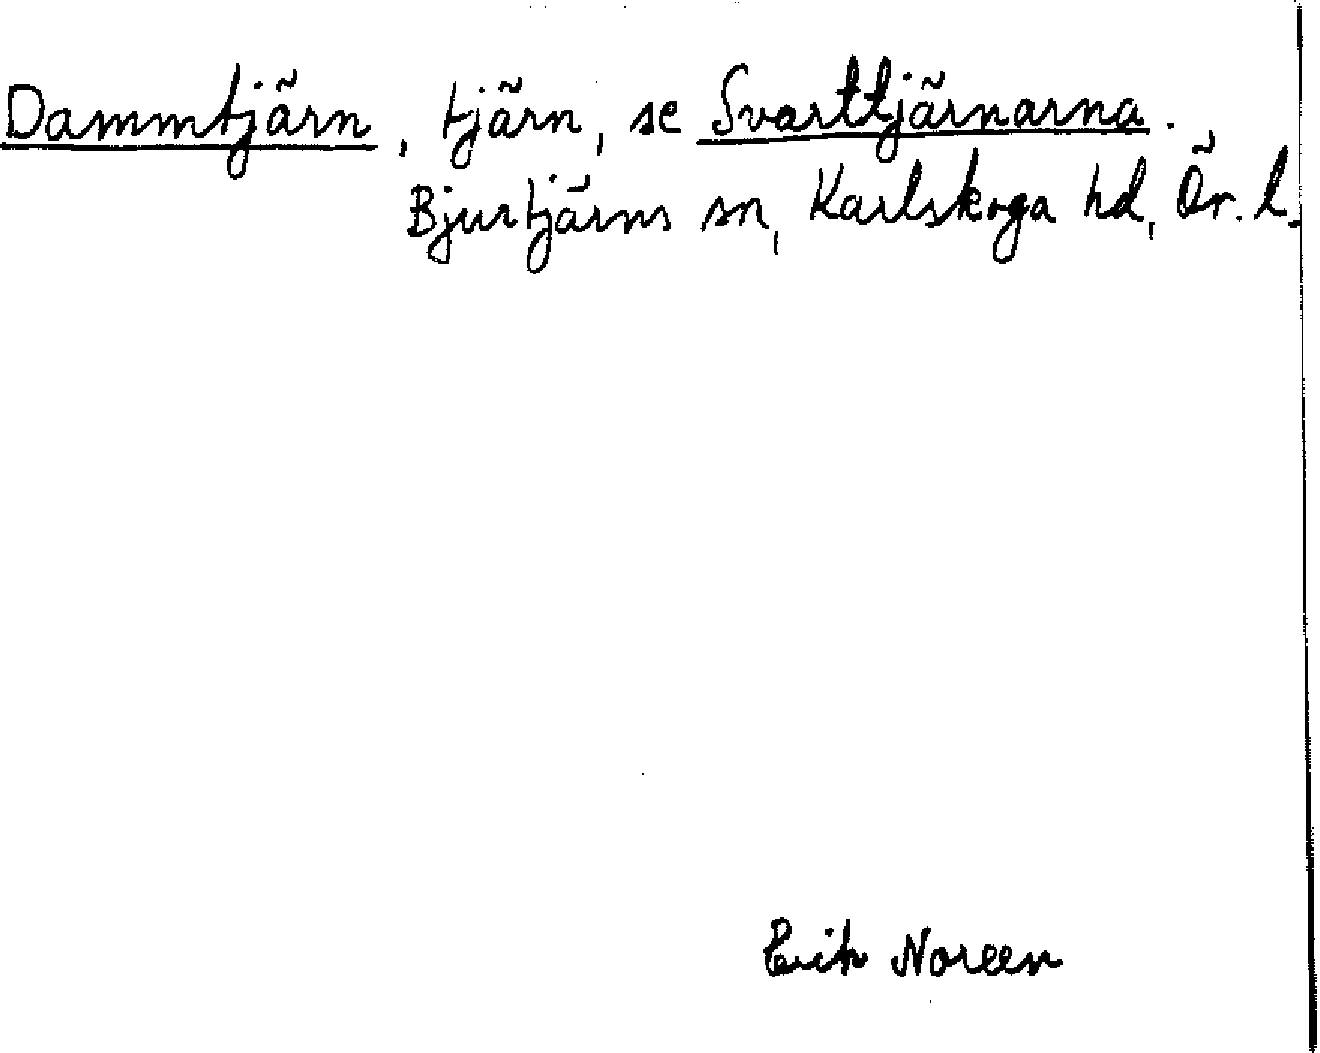 Dammtjärn, tjärn, se Svarttjärnarna.
Bjurtjärns sn, Karlskoga hd, Ör. l.
Erik Noreen